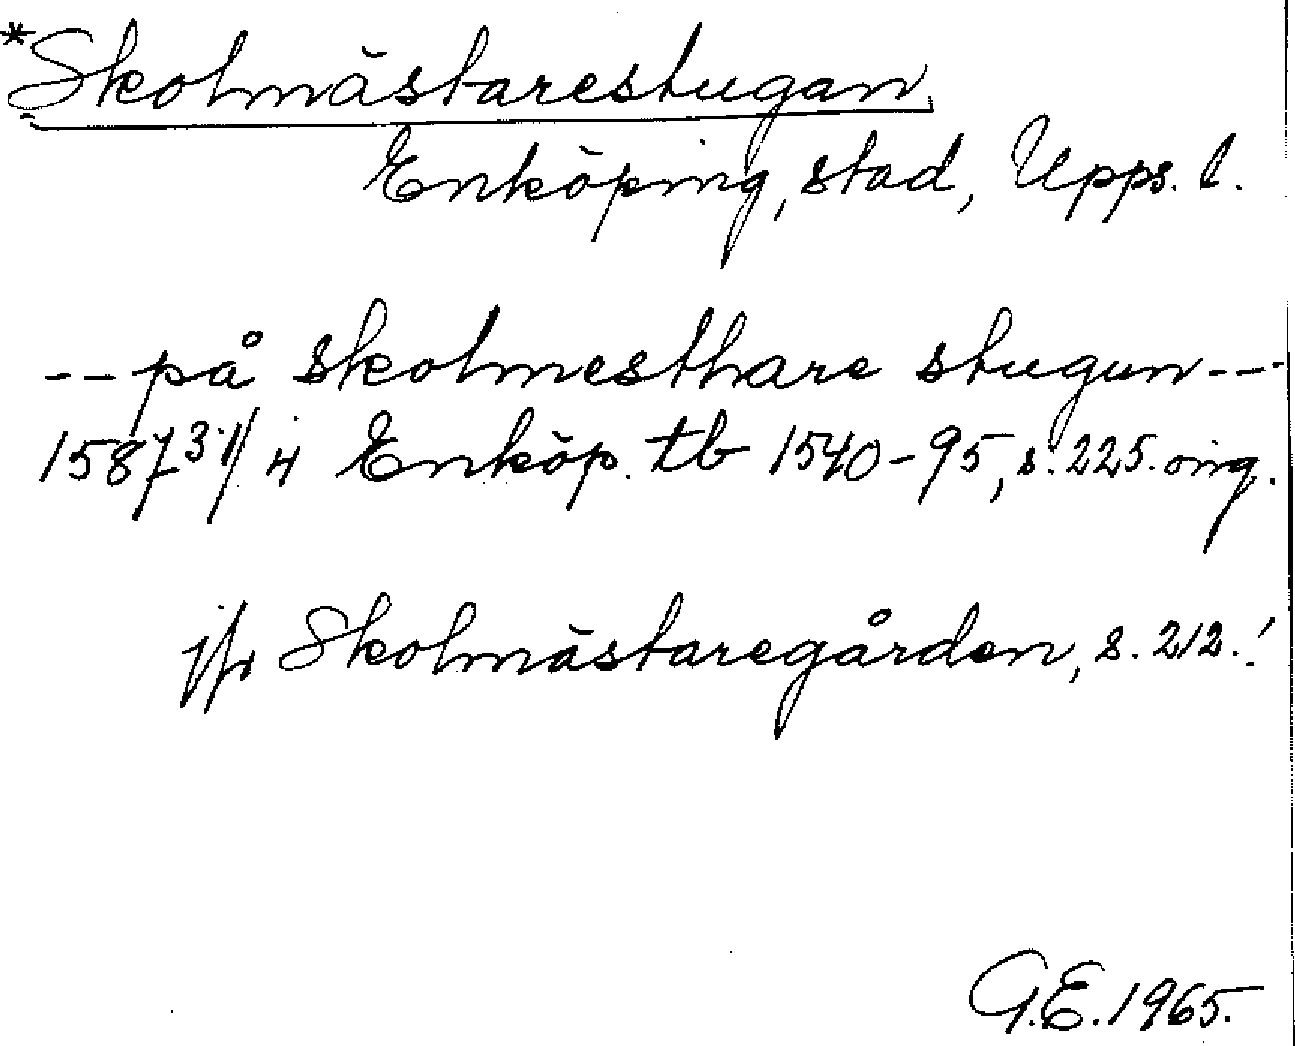 *Skolmästarestugan.
Enköping, stad, Upps. l.
-- på skolmesthare stugun ---
1587 31/4 Enköp. tb 1540-95, s. 225. orig.
jfr Skolmästaregården, s. 212.!
G.E. 1965.